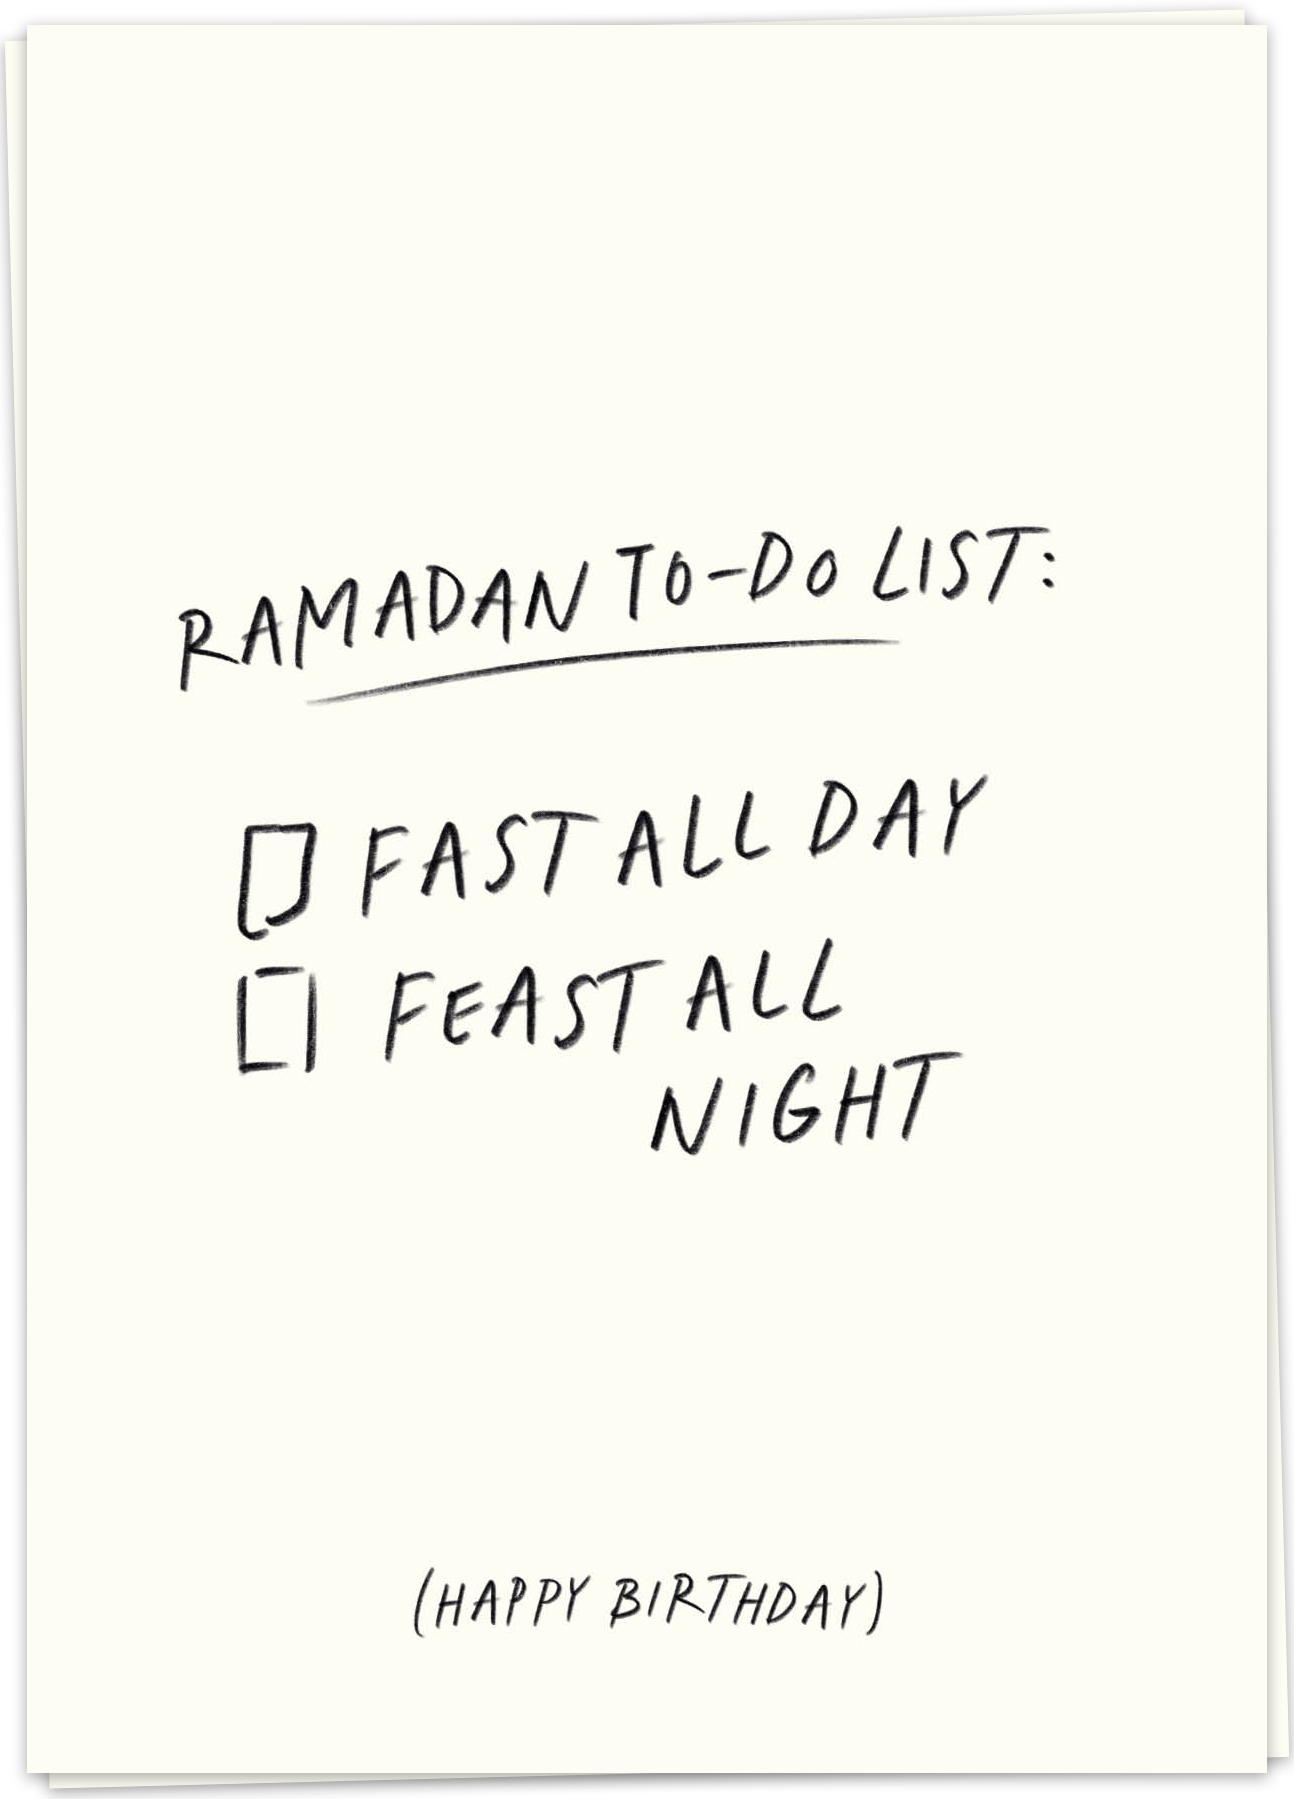 RAMADAN TO-DO LIST:
FAST ALL DAY
FEAST ALL
NIGHT
(HAPPY BIRTHDAY)